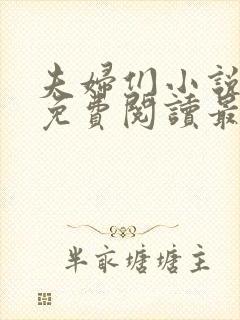 夫婦们小說
免費閱讀最
半畝塘塘主